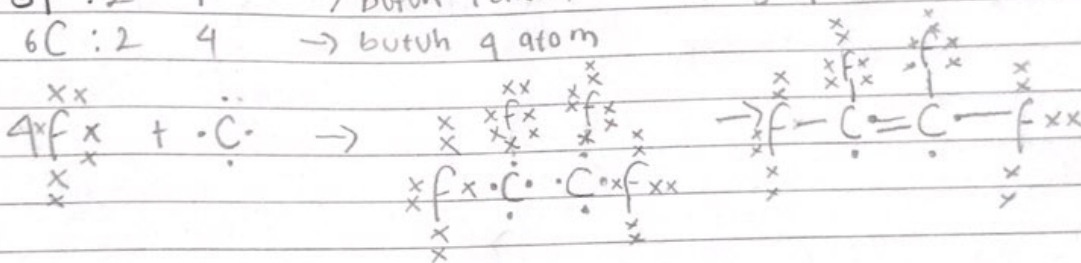 6C : 2 4 → butuh 4 atom
4 f + C → f C C f → f - C = C - f
f f
f f